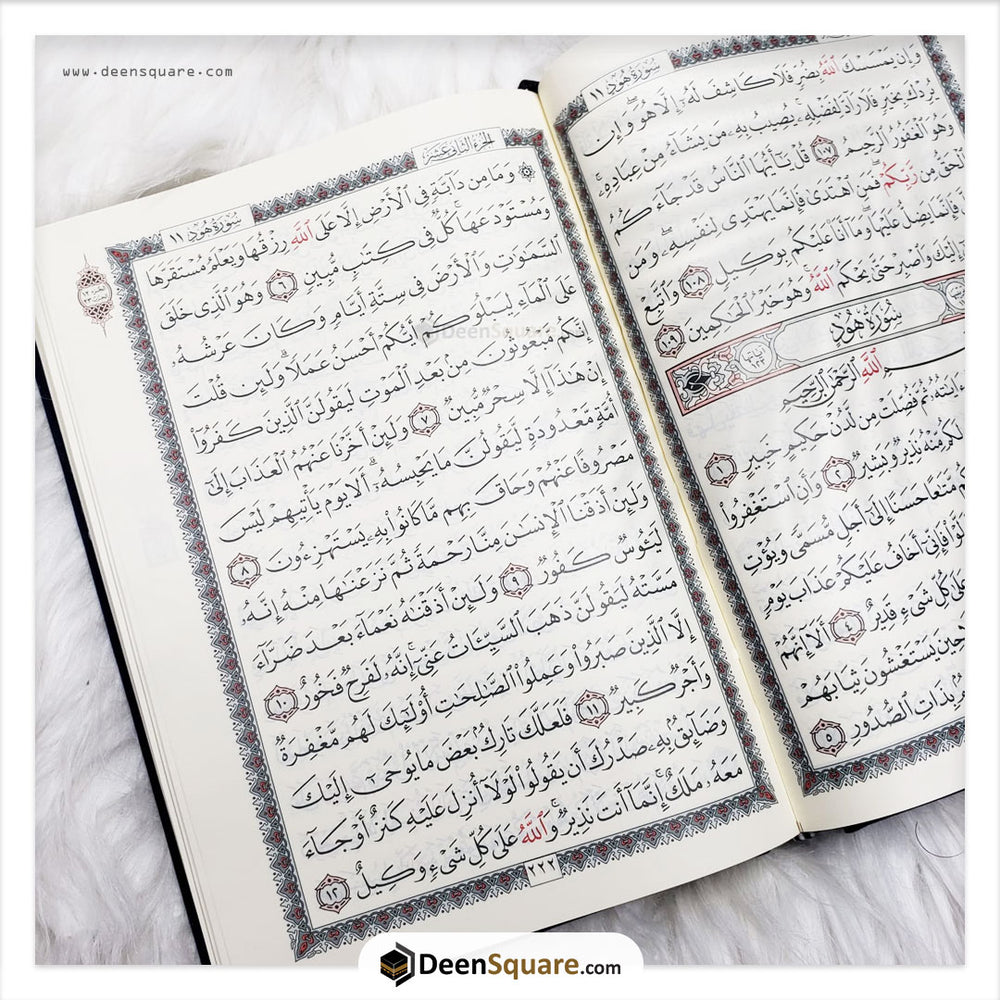 www.deensquare.com
سُورَةُ هُودٍ ١١
وَإِن يَمْسَسْكَ ٱللَّهُ بِضُرٍّ فَلَا كَاشِفَ لَهُۥٓ إِلَّا هُوَ ۖ وَإِن
يُرِدْكَ بِخَيْرٍ فَلَا رَآدَّ لِفَضْلِهِۦ ۚ يُصِيبُ بِهِۦ مَن يَشَآءُ مِنْ عِبَادِهِۦ ۚ
وَهُوَ ٱلْغَفُورُ ٱلرَّحِيمُ ١٠٧ قُلْ يَٰٓأَيُّهَا ٱلنَّاسُ قَدْ جَآءَكُمُ
ٱلْحَقُّ مِن رَّبِّكُمْ ۖ فَمَنِ ٱهْتَدَىٰ فَإِنَّمَا يَهْتَدِى لِنَفْسِهِۦ ۖ وَمَن
فَإِنَّمَا يَضِلُّ عَلَيْهَا ۖ وَمَآ أَنَا۠ عَلَيْكُم بِوَكِيلٍ ١٠٨ وَٱتَّبِعْ
إِلَيْكَ وَٱصْبِرْ حَتَّىٰ يَحْكُمَ ٱللَّهُ ۚ وَهُوَ خَيْرُ ٱلْحَٰكِمِينَ ١٠٩
سُورَةُ هُودٍ
ٱللَّهِ ٱلرَّحْمَٰنِ ٱلرَّحِيمِ
ثُمَّ فُصِّلَتْ مِن لَّدُنْ حَكِيمٍ خَبِيرٍ ١
لَكُم مِّنْهُ نَذِيرٌ وَبَشِيرٌ ٢ وَأَنِ ٱسْتَغْفِرُوا۟
مَّتَٰعًا حَسَنًا إِلَىٰٓ أَجَلٍ مُّسَمًّى وَيُؤْتِ
فَإِنِّىٓ أَخَافُ عَلَيْكُمْ عَذَابَ يَوْمٍ
عَلَىٰ كُلِّ شَىْءٍ قَدِيرٌ ٤ أَلَآ إِنَّهُمْ
حِينَ يَسْتَغْشُونَ ثِيَابَهُمْ
بِذَاتِ ٱلصُّدُورِ ٥
الجزء الثاني عشر
سُورَةُ هُودٍ ١١
۞ وَمَا مِن دَآبَّةٍ فِى ٱلْأَرْضِ إِلَّا عَلَى ٱللَّهِ رِزْقُهَا وَيَعْلَمُ مُسْتَقَرَّهَا
وَمُسْتَوْدَعَهَا ۚ كُلٌّ فِى كِتَٰبٍ مُّبِينٍ ٦ وَهُوَ ٱلَّذِى خَلَقَ
ٱلسَّمَٰوَٰتِ وَٱلْأَرْضَ فِى سِتَّةِ أَيَّامٍ وَكَانَ عَرْشُهُۥ
عَلَى ٱلْمَآءِ لِيَبْلُوَكُمْ أَيُّكُمْ أَحْسَنُ عَمَلًا ۗ وَلَئِن قُلْتَ
إِنَّكُم مَّبْعُوثُونَ مِنۢ بَعْدِ ٱلْمَوْتِ لَيَقُولَنَّ ٱلَّذِينَ كَفَرُوٓا۟
إِنْ هَٰذَآ إِلَّا سِحْرٌ مُّبِينٌ ٧ وَلَئِنْ أَخَّرْنَا عَنْهُمُ ٱلْعَذَابَ إِلَىٰٓ
أُمَّةٍ مَّعْدُودَةٍ لَّيَقُولُنَّ مَا يَحْبِسُهُۥٓ ۗ أَلَا يَوْمَ يَأْتِيهِمْ لَيْسَ
مَصْرُوفًا عَنْهُمْ وَحَاقَ بِهِم مَّا كَانُوا۟ بِهِۦ يَسْتَهْزِءُونَ ٨
وَلَئِنْ أَذَقْنَا ٱلْإِنسَٰنَ مِنَّا رَحْمَةً ثُمَّ نَزَعْنَٰهَا مِنْهُ إِنَّهُۥ
لَيَـُٔوسٌ كَفُورٌ ٩ وَلَئِنْ أَذَقْنَٰهُ نَعْمَآءَ بَعْدَ ضَرَّآءَ
مَسَّتْهُ لَيَقُولَنَّ ذَهَبَ ٱلسَّيِّـَٔاتُ عَنِّىٓ ۚ إِنَّهُۥ لَفَرِحٌ فَخُورٌ ١٠
إِلَّا ٱلَّذِينَ صَبَرُوا۟ وَعَمِلُوا۟ ٱلصَّٰلِحَٰتِ أُو۟لَٰٓئِكَ لَهُم مَّغْفِرَةٌ
وَأَجْرٌ كَبِيرٌ ١١ فَلَعَلَّكَ تَارِكٌۢ بَعْضَ مَا يُوحَىٰٓ إِلَيْكَ
وَضَآئِقٌۢ بِهِۦ صَدْرُكَ أَن يَقُولُوا۟ لَوْلَآ أُنزِلَ عَلَيْهِ كَنزٌ أَوْ جَآءَ
مَعَهُۥ مَلَكٌ ۚ إِنَّمَآ أَنتَ نَذِيرٌ ۚ وَٱللَّهُ عَلَىٰ كُلِّ شَىْءٍ وَكِيلٌ ١٢
٢٢٢
DeenSquare
DeenSquare.com